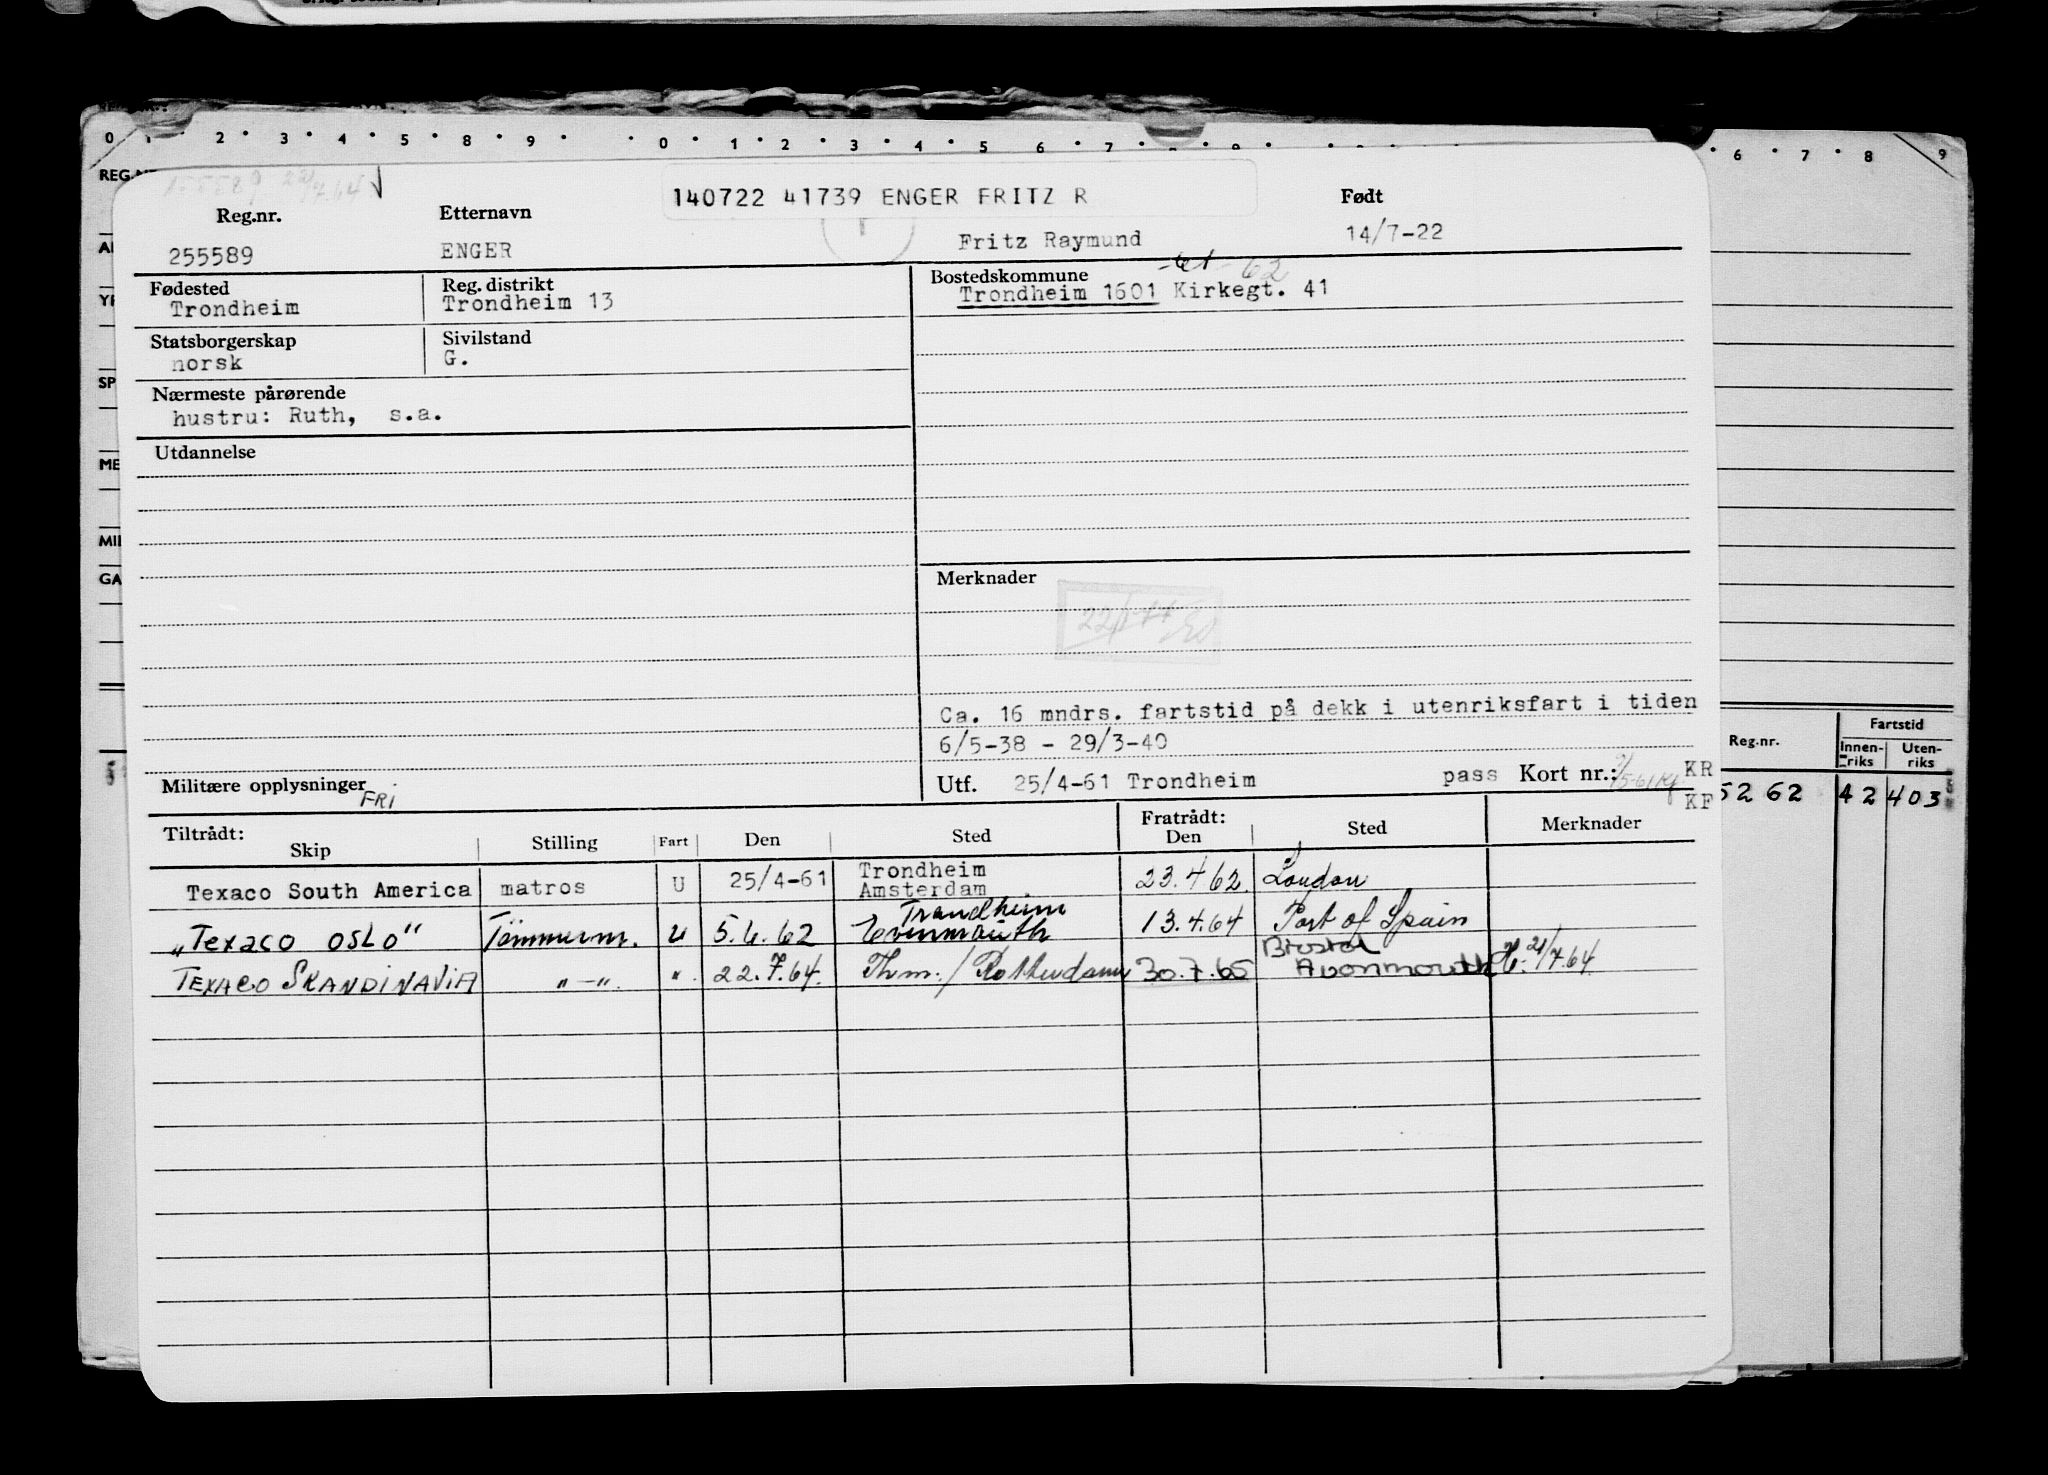 0 1 2 3 4 5 8 9 0 1 2 3 4 5 6 7 8 9 6 7 8 9
REG.
140722 41739 ENGER FRITZ R
Reg.nr. Etternavn Født
255589 ENGER Fritz Raymund 14/7-22
Fødested Reg. distrikt Bostedskommune -61 - 62
Trondheim Trondheim 13 Trondheim 1601 Kirkegt. 41
Statsborgerskap Sivilstand
norsk G.
Nærmeste pårørende
hustru: Ruth, s.a.
Utdannelse
Merknader
Ca. 16 mndrs. fartstid på dekk i utenriksfart i tiden
6/5-38 - 29/3-40
Militære opplysninger FRI
Utf. 25/4-61 Trondheim pass Kort nr.: KR
KF
Tiltrådt: Fratrådt:
Skip Stilling Fart Den Sted Den Sted Merknader
Texaco South America matros U 25/4-61 Trondheim Amsterdam 23.4 62. London
"Texaco OSLO" Tömmerm. U 5.6.62 Trondheim 13.4.64 Port of Spain
TEXACO SKANDINAVIA " — ". " 22.7.64. Thm. / Rotterdam 30.7.65 Bristol Avonmouth 21/7.64.
Reg.nr. Fartstid
Innen-riks Uten-riks
5262 42 403